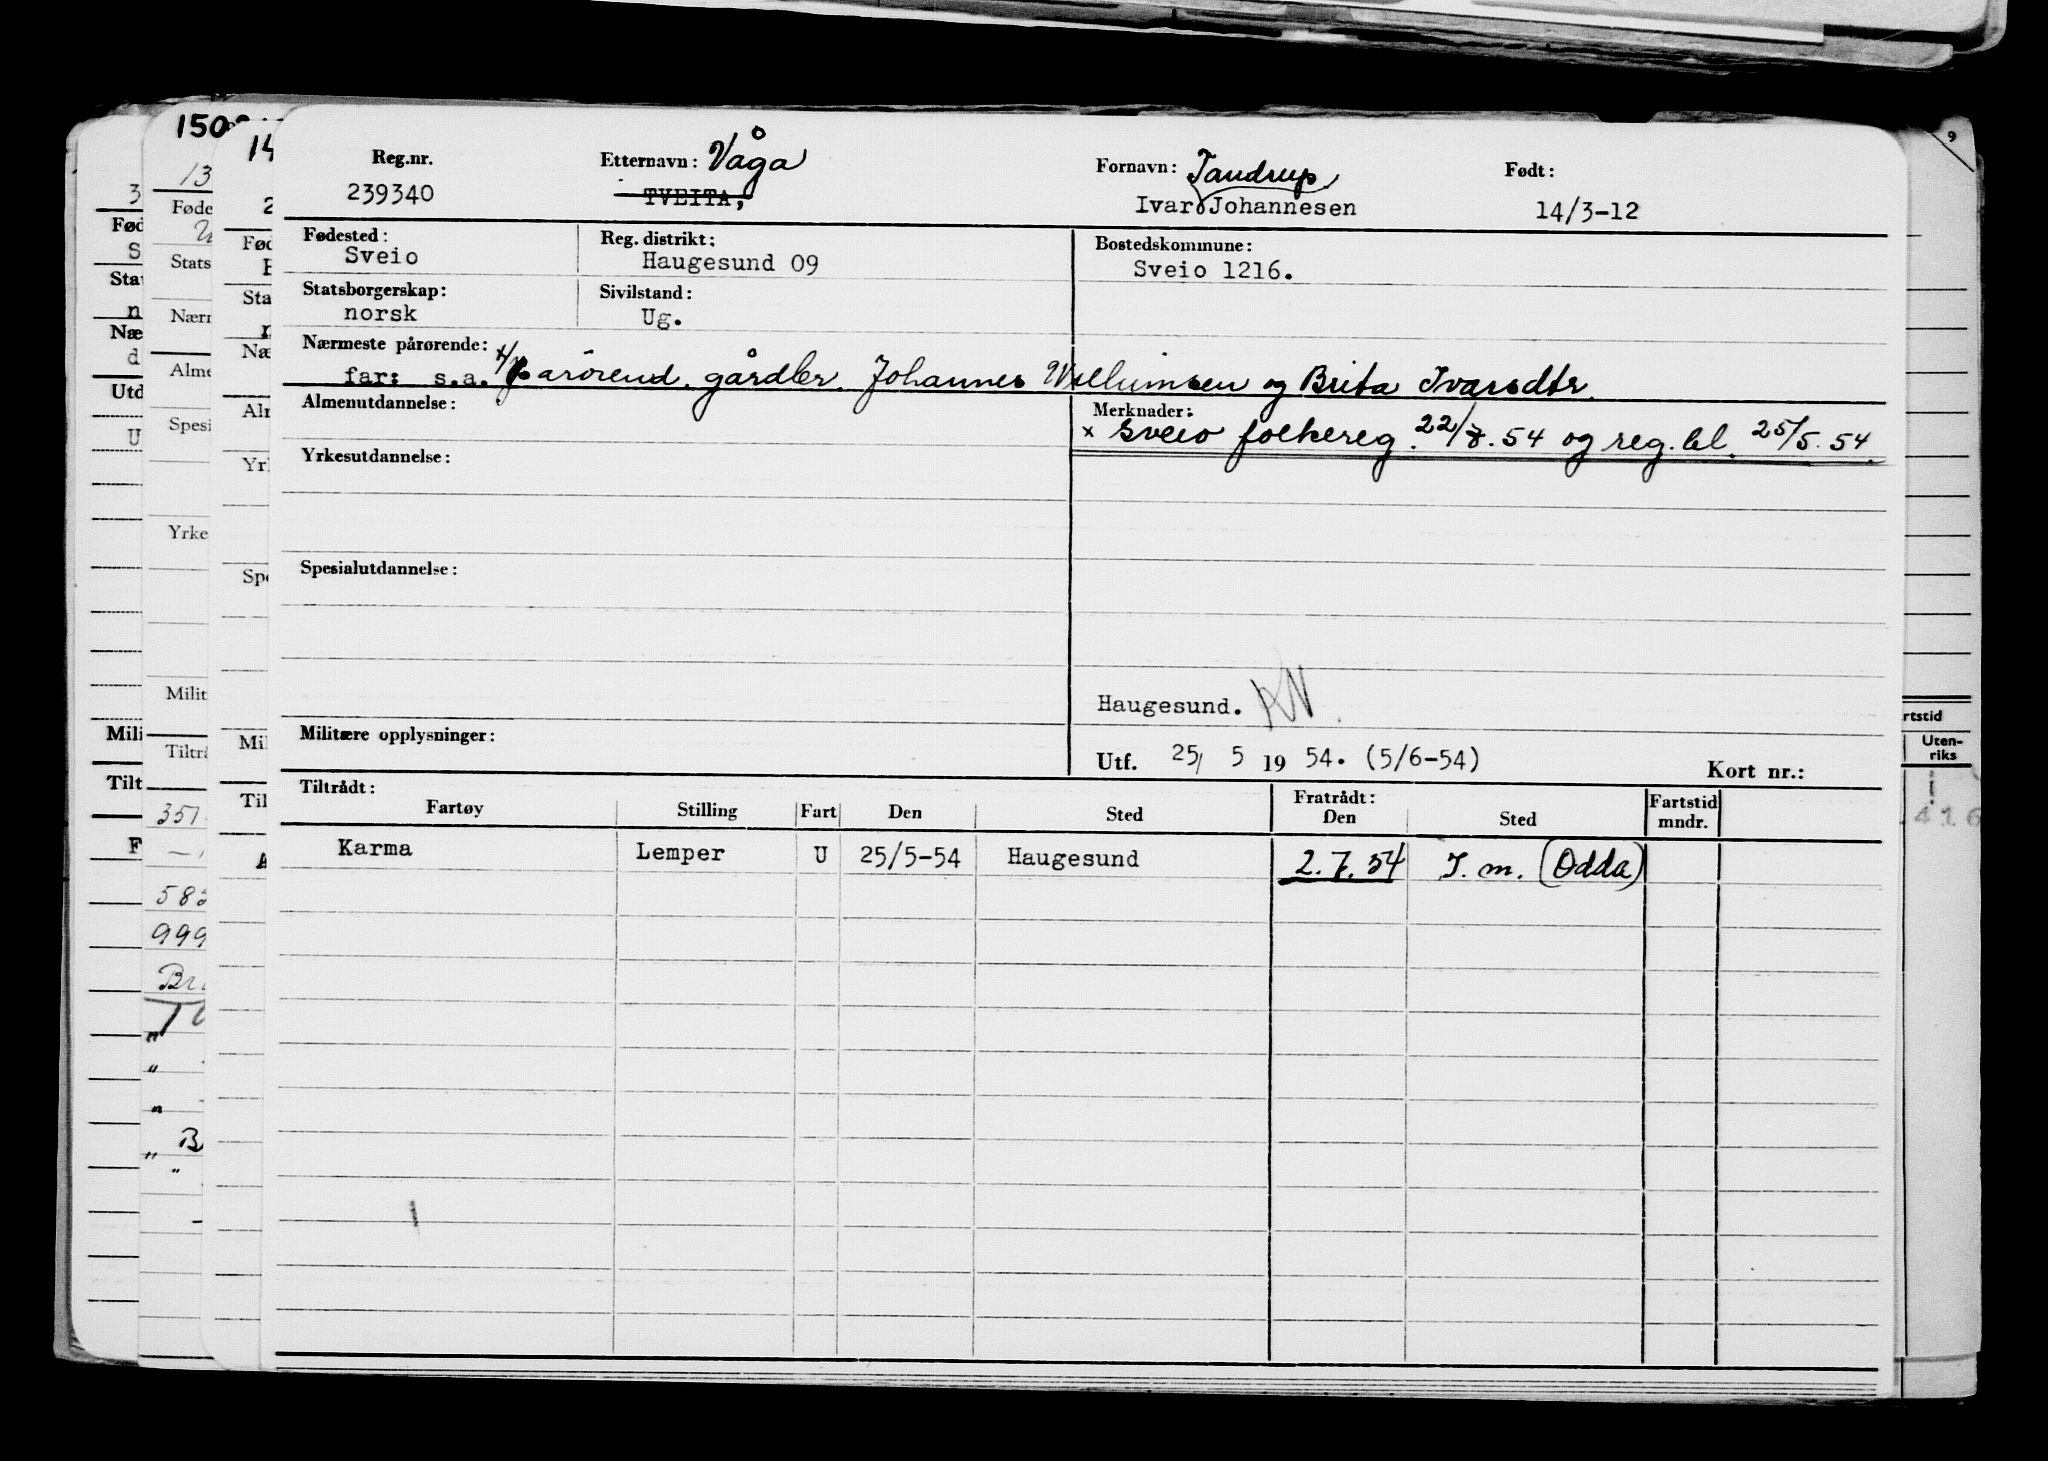 Reg.nr. Etternavn: Våga Fornavn: Tandrup Født:
239340 TVEITA, Ivar Johannesen 14/3-12
Fødested: Reg. distrikt: Bostedskommune:
Sveio Haugesund 09 Sveio 1216.
Statsborgerskap: Sivilstand:
norsk Ug.
Nærmeste pårørende:
far: s.a. x/ parörend. gårdbr. Johannes Willumsen og Brita Ivarsdtr.
Almenutdannelse: Merknader:
x Sveio folkereg. 22/8.54 og reg.bl. 25/5.54.
Yrkesutdannelse:
Spesialutdannelse:
Haugesund.
Militære opplysninger:
Utf. 25/ 5 19 54. (5/6-54) Kort nr.:
Tiltrådt: Fratrådt: Fartstid
Fartøy Stilling Fart Den Sted Den Sted mndr.
Karma Lemper U 25/5-54 Haugesund 2.7.54 I.m. (Odda)